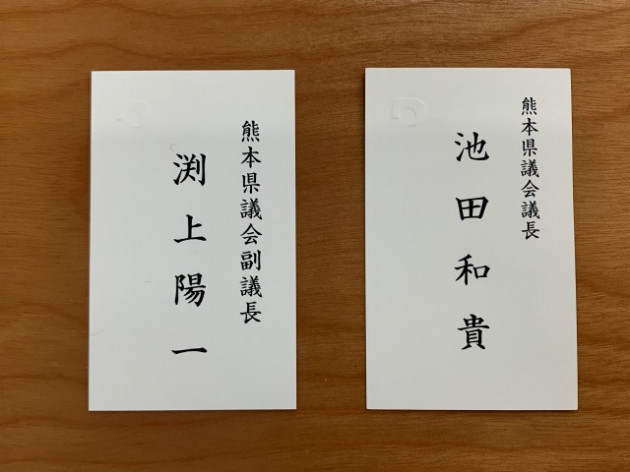 熊本県議会議長
池田和貴
熊本県議会副議長
渕上陽一